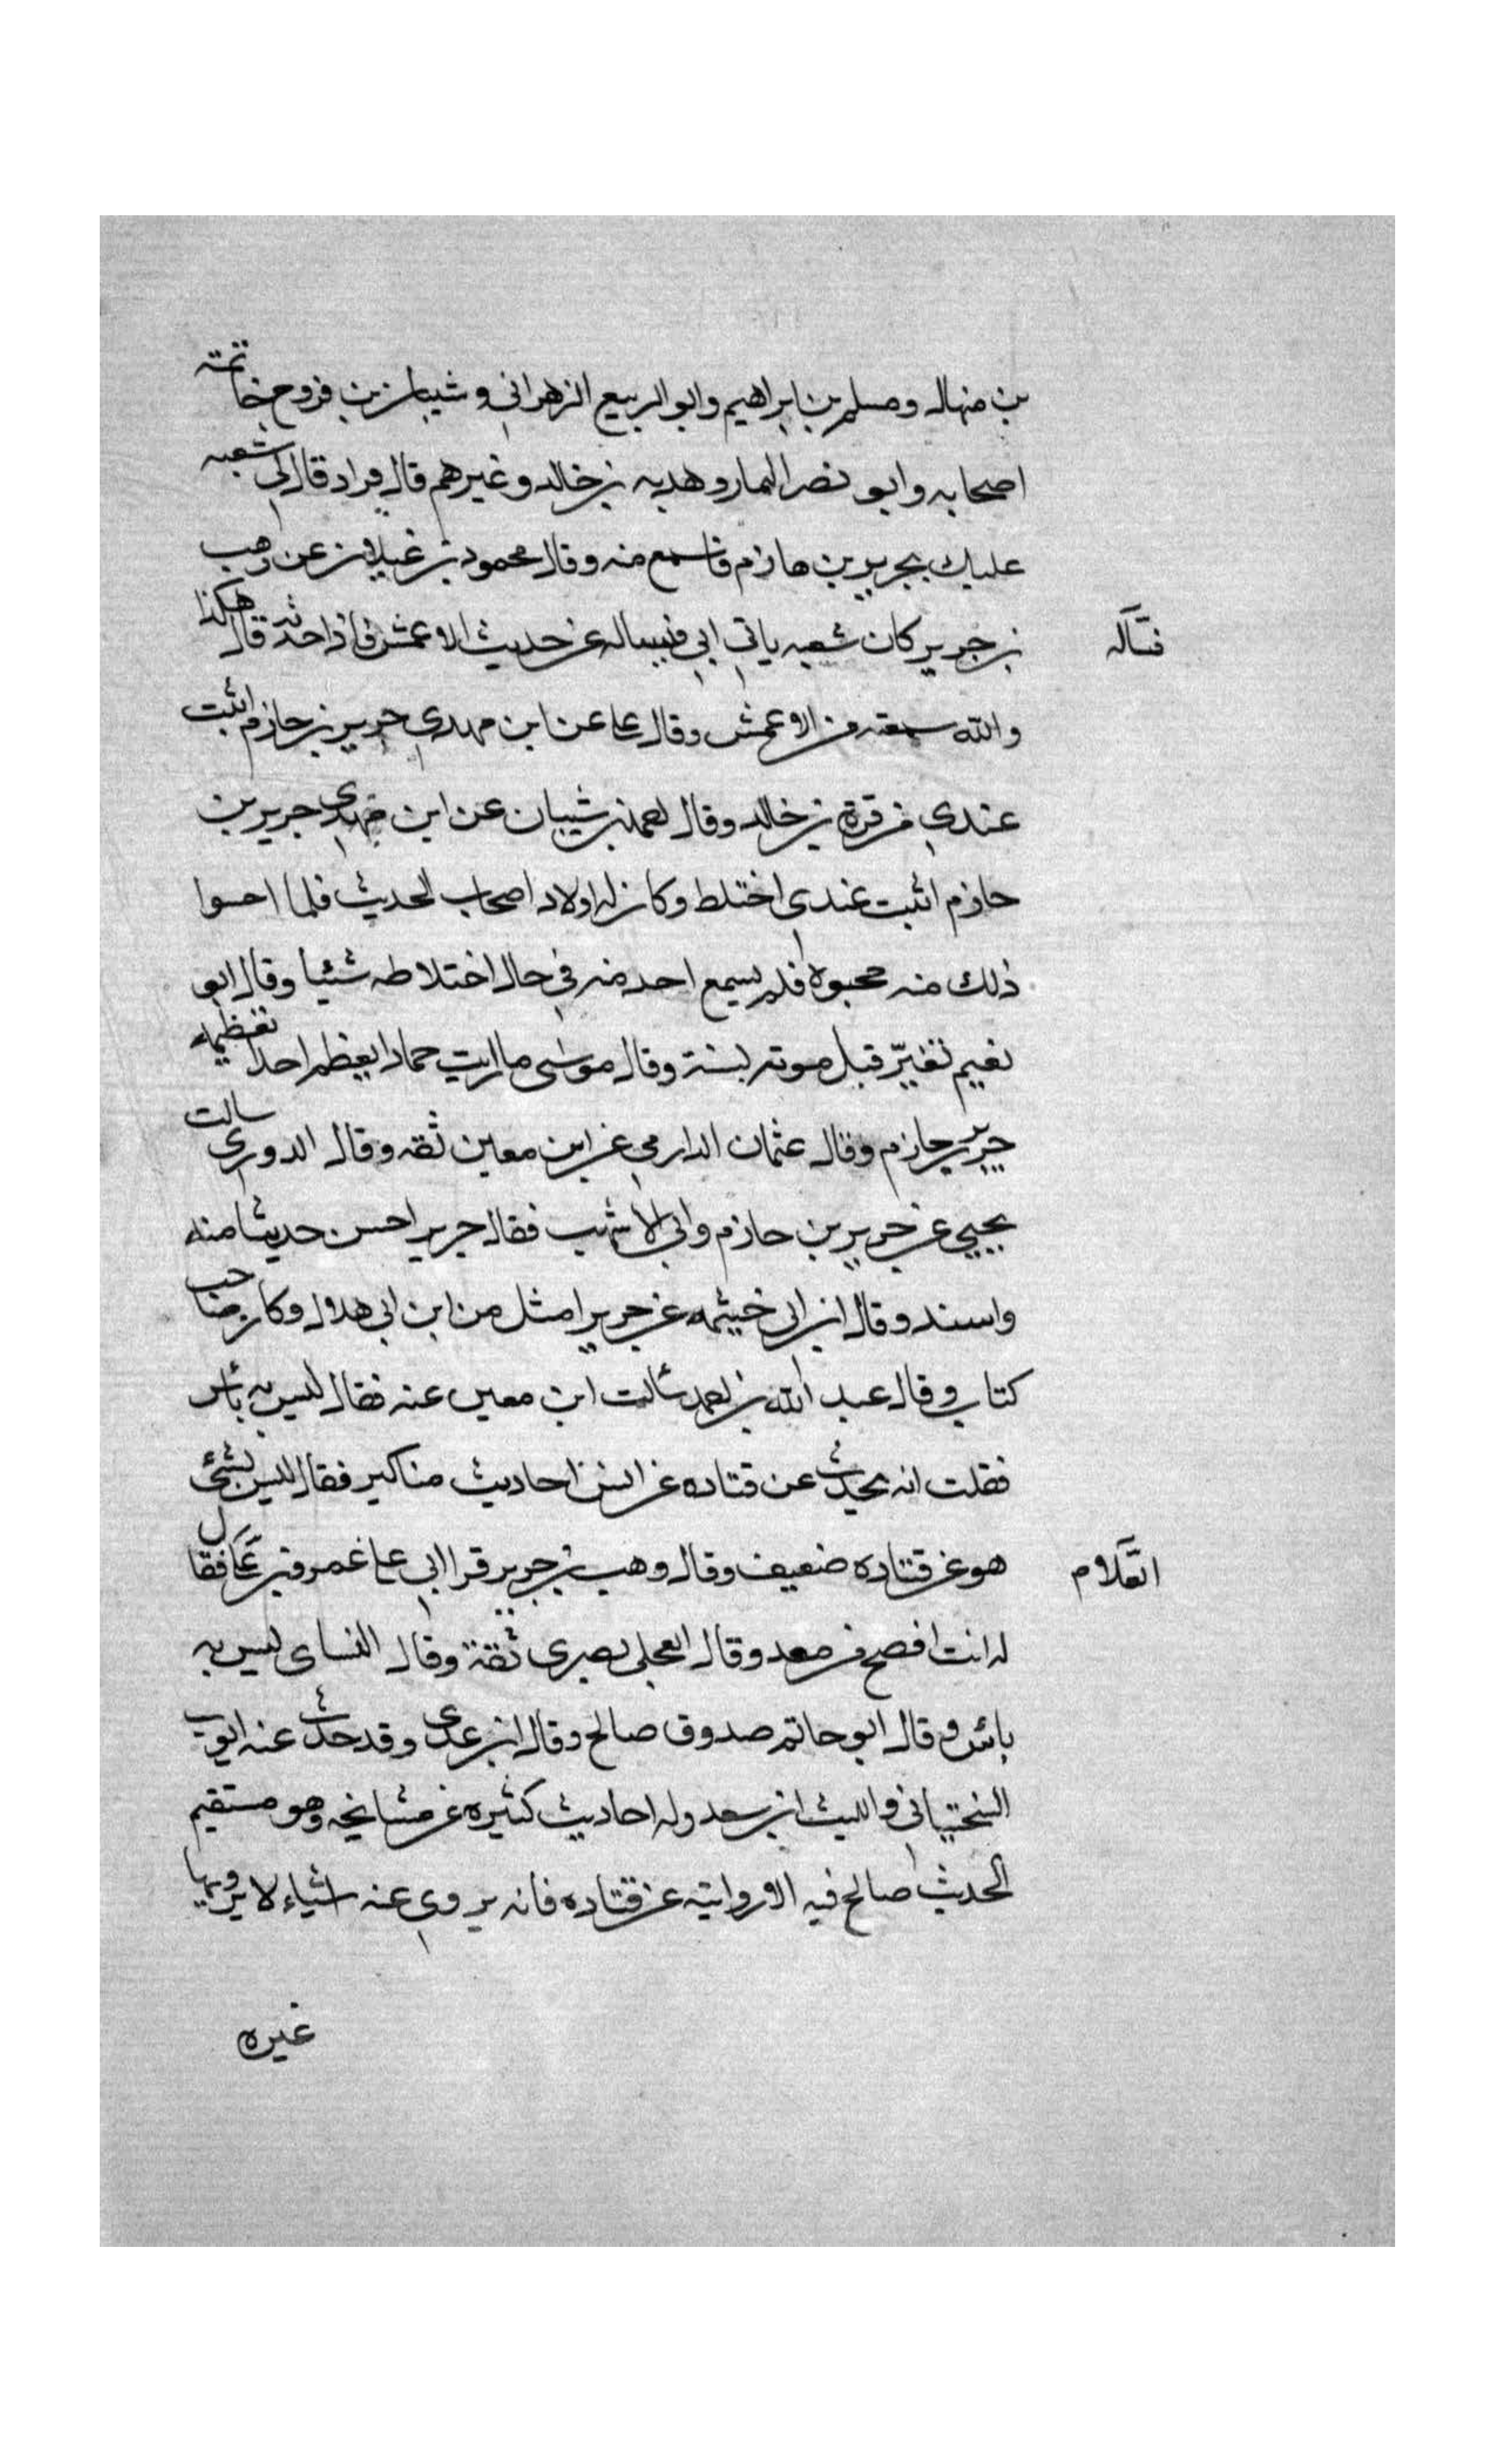 بن منهال ومسلم بن ابراهيم وابو الربيع الزهراني وشيبان بن فروخ خاتمة
اصحابه وابو نصر التمار وهدبه بن خالد وغيرهم قال قراد قال لي شعبه
عليك بجرير بن حازم فاسمع منه وقال محمود بن غيلان عن وهب
بن جرير كان شعبه ياتي ابي فيساله عن حديث الاعمش فاذا حدثه قال هكذا
فسأله
والله سمعته من الاعمش وقال علي عن ابن مهدي جرير بن حازم اثبت
عندي من قرة بن خالد وقال احمد بن شيبان عن ابن مهدي جرير بن
حازم اثبت عندي اختلط وكان له اولاد اصحاب الحديث فلما احسوا
ذلك منه حجبوه فلم يسمع احد منه في حال اختلاطه شيئا وقال ابو
نعيم تغيّر قبل موته بسنة وقال موسى ما رايت حمادا يعظم احدا تعظيمه
جرير بن حازم وقال عثمان الدارمي عن ابن معين ثقه وقال الدوري سالت
يحيى عن جرير بن حازم وابي الاشهب فقال جرير احسن حديثا منه
واسند وقال ابن ابي خيثمه عن جرير امثل من ابن ابي هلال وكان صاحب
كتاب وقال عبد الله بن احمد سألت ابن معين عنه فقال ليس به بأس
فقلت انه يحدث عن قتاده عن انس احاديث مناكير فقال ليس بشئ
هو عن قتاده ضعيف وقال وهب بن جرير قرا ابي على عمرو بن فقال
العلام
له انت افصح من معد وقال العجلي بصري ثقة وقال النساي ليس به
بأس وقال ابو حاتم صدوق صالح وقال ابن عدي وقد حدث عنه ايوب
السختياني والليث ابن سعد وله احاديث كثيره عن مشايخه وهو مستقيم
الحديث صالح فيه الا روايته عن قتاده فانه يروي عنه اشياء لا يرويها
غيره